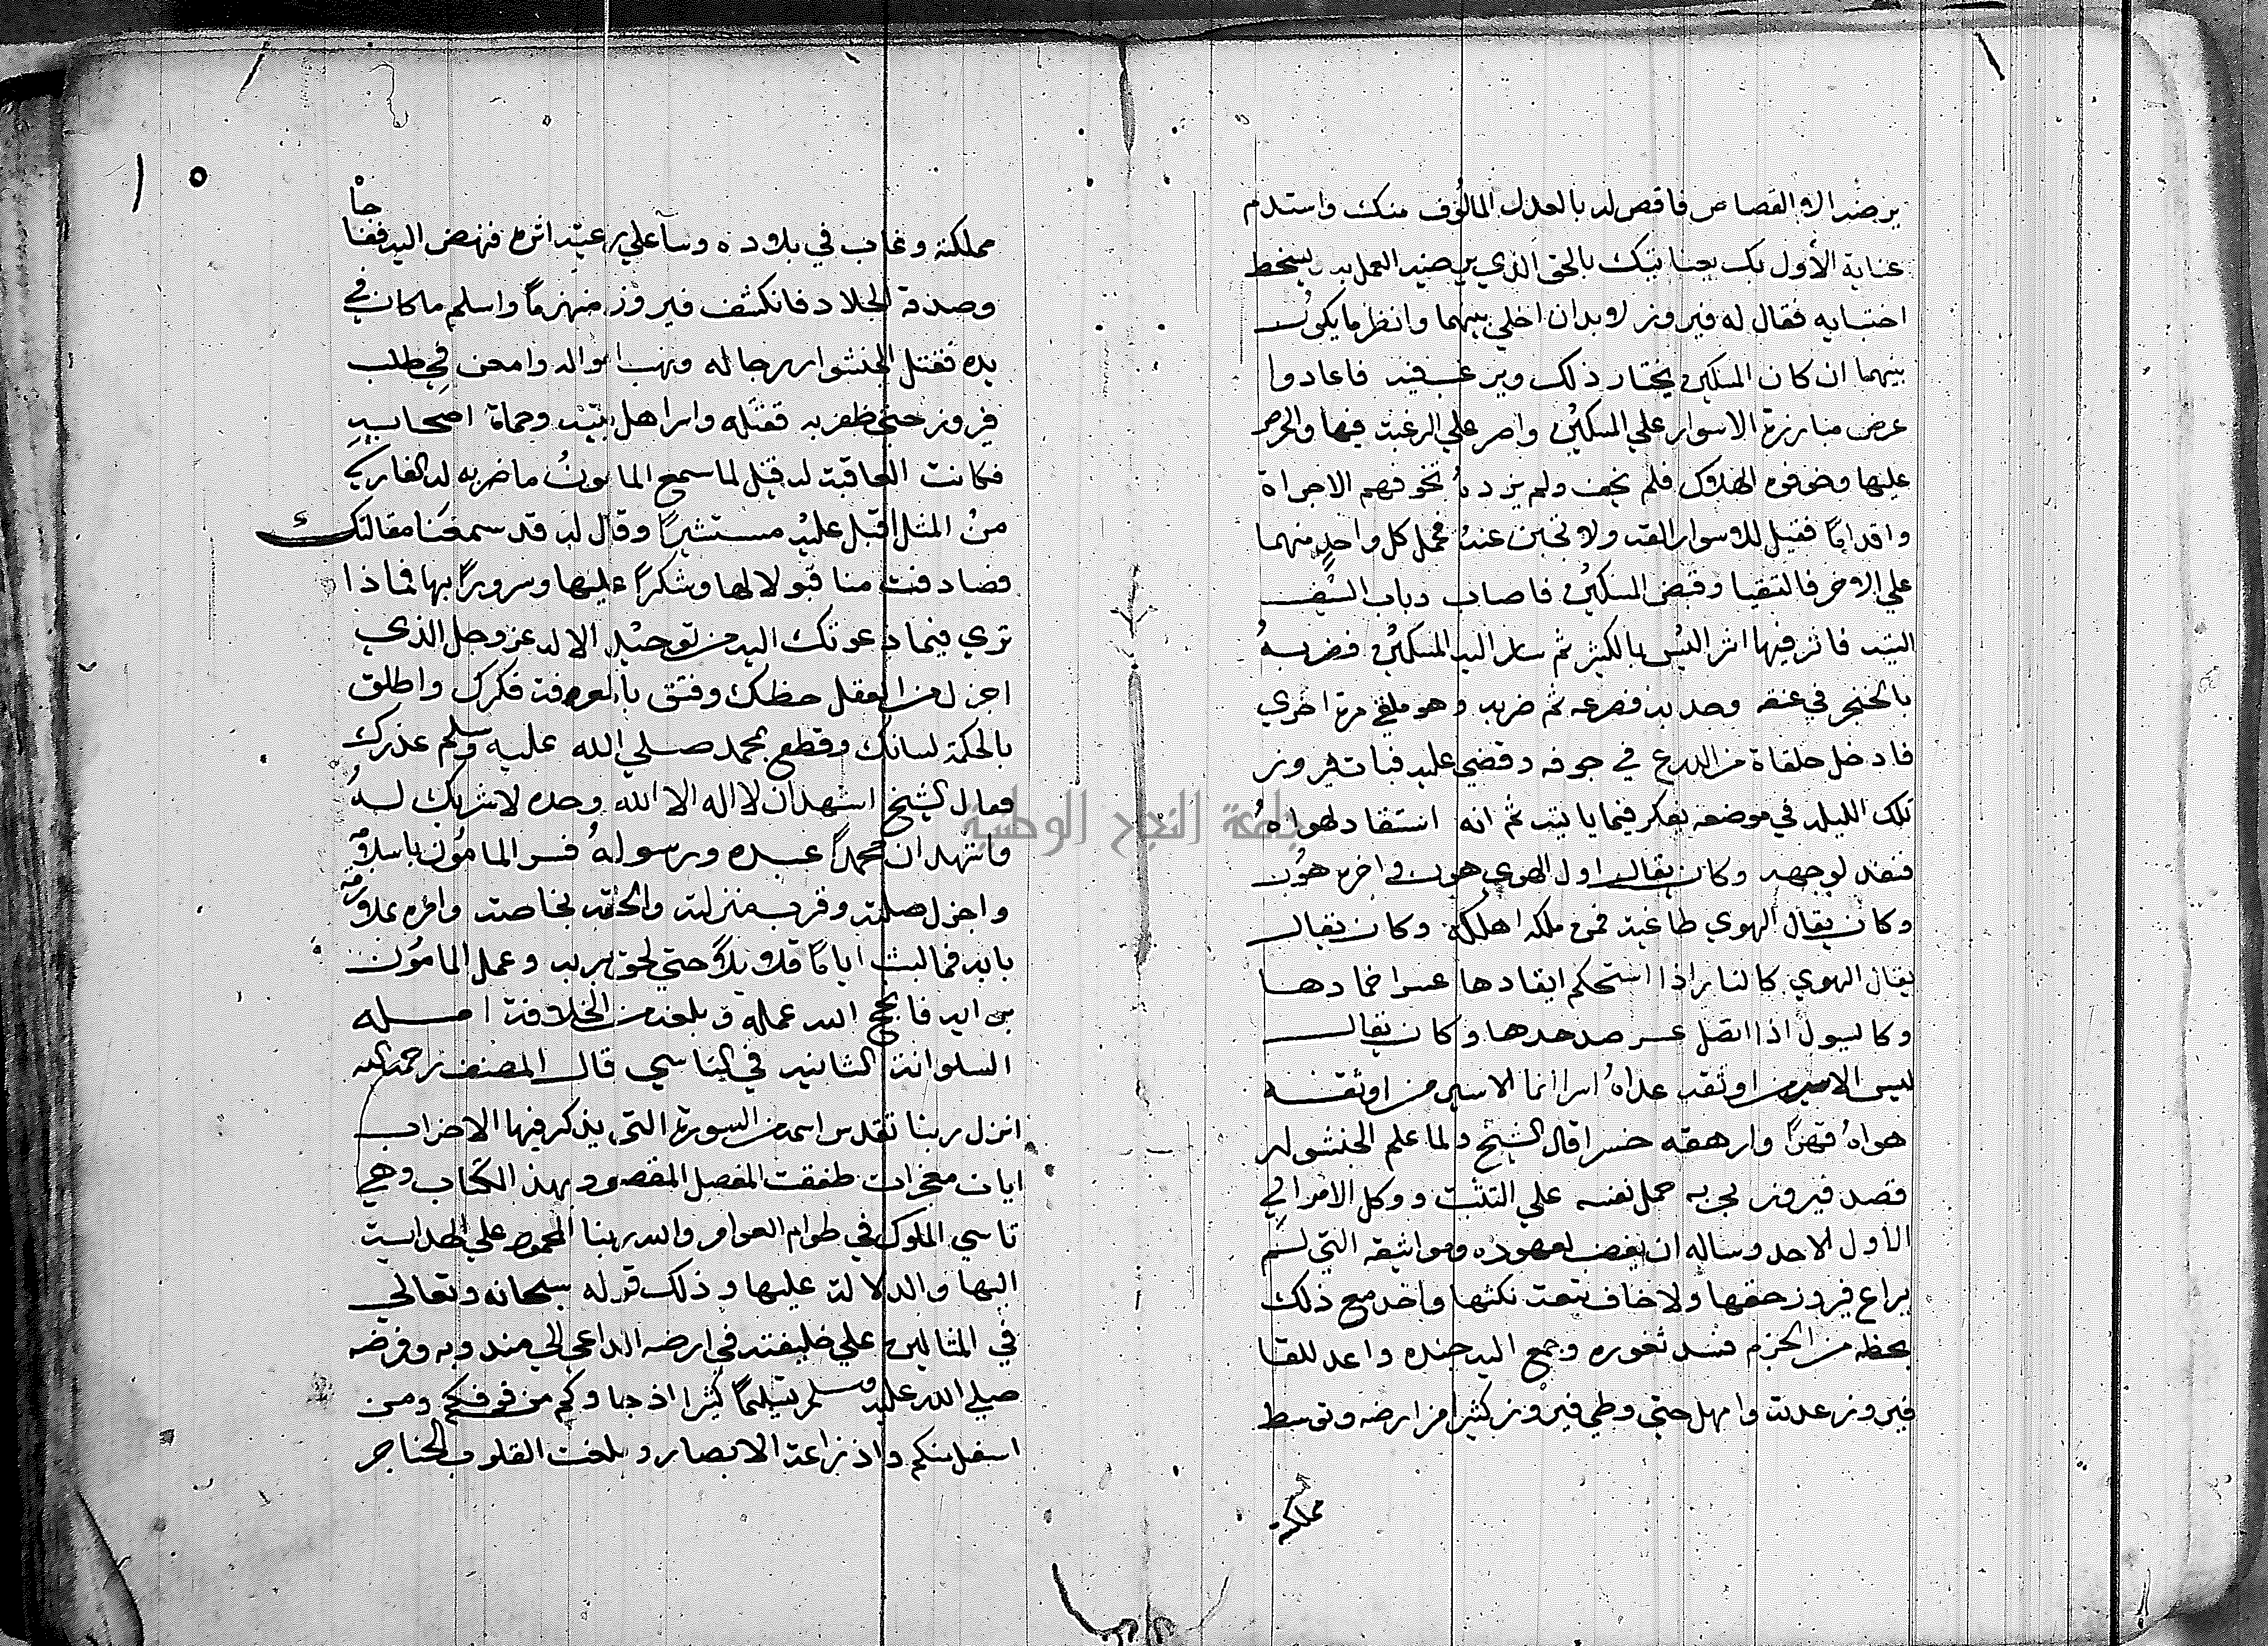 يرضه الا القصاص فاقص له بالعدل المالوف منك واستدم
عناية الأول بك بعنايتك بالحق الذي يرضيه العمل به ويسخط
اجتنابه فقال له فيروز لا بد ان اخلي بينهما وانظر ما يكون
بينهما ان كان المسكين يختار ذلك ويرغب فيه فاعادوا
عرض مبارزة الاسوار علي المسكين واصر علي الرغبة فيها والحرص
عليها وخوفوه الهلاك فلم يخف ولم يزده تخوفهم الا جراة
واقداما فقيل للاسوار القه ولا تجبن عنه فحمل كل واحد منهما
علي الاخر فالتقيا وقبض المسكين فاصاب دباب السيف
اليته فاثر فيها اثر اليس بالكثير ثم سار اليه المسكين فضربه
بالخنجر في عنقه وجذبه فصرعه ثم ضربه وهو ملقي مرة اخري
فادخل حلقاة من الدرع في جوفه وقضي عليه فبات فيروز
تلك الليلة في موضعه يفكر فيما ياتيه ثم انه استقاد لهواه
فنفذ لوجهه وكان يقال اول الهوي هون واخره هون
وكان يقال الهوي طاغية فمن ملكه اهلكه وكان يقال
يقال الهوي كالنار اذا استحكم ايقادها عسر اخمادها
وكالسيول اذا اتصل عسر صدها وكان يقال
ليس الاسير من اوثقه عداه اسرا انما الاسير من اوثقه
هواه قهرا وارهقه خسرا قال الشيخ ولما علم الخنشوار
قصد فيروز لحربه حمل نفسه علي التثبت ووكل الامر الي
الاول الاحد وساله ان يغضب لعهوده ومواثيقه التي لم
يراع فيروز حقها ولا خاف تبعة نكثها واخذ مع ذلك
بحظه من الحزم فسد ثغوره وجمع اليه جنده واعد للقا
فيروز عدته وامهل حتي وطي فيروز كثيرا من ارضه وتوسط
مملكته
١٠
مملكته وعاث في بلاده وسآ علي رعيته اثره فنهض اليه ففاجا
وصدقه الجلاد فانكشف فيروز منهزما واسلم ما كان في
يده فقتل الخنشوار رجاله ونهب امواله وامعن في طلب
فيروز حتي ظفر به فقتله واسر اهل بيته وحماة اصحابه
فكانت العاقبة له قيل لما سمع المامون ما ضربه له الفارسي
من المثل اقبل عليه مستبشرا وقال له قد سمعنا مقالتك
فصادفت منا قبولا لها وشكرا عليها وسرورا بها فماذا
تري فيما دعوتك اليه من توحيد الاله عز وجل الذي
اجزل من العقل حظك وفتق بالمعرفة فكرك واطلق
بالحكمة لسانك وقطع بمحمد صلي الله عليه وسلم عذرك
فقال الشيخ اشهد ان لا اله الا الله وحده لا شريك له
واشهد ان محمدا عبده ورسوله فسر المامون باسلامه
واجزل صلته وقرب منزلته والحقه بخاصته وامره بملازمة
بابه فما لبث اياما قلايلا حتي لحق بربه وعمل المامون
براييه فانجح الله عمله وبلغه من الخلافة امله
السلوانة الثانيه في التاسي قال المصنف رحمه الله
انزل ربنا تقدس اسمه في السورة التي يذكر فيها الاحزاب
ايات معجزات طفقت المفصل المقصود بهذا الكتاب وهي
تاسي الملوك في طوام العوام والله ربنا المحمود علي الهداية
اليها والدلالة عليها وذلك قوله سبحانه وتعالي
في المثالين علي خليفته في ارضه الداعي الي مندوبه وفرضه
صلي الله عليه وسلم تسليما كثيرا اذ جاوكم من فوقكم ومن
اسفل منكم واذ زاغت الابصار وبلغت القلوب الحناجر
جامعة النجاح الوطنية